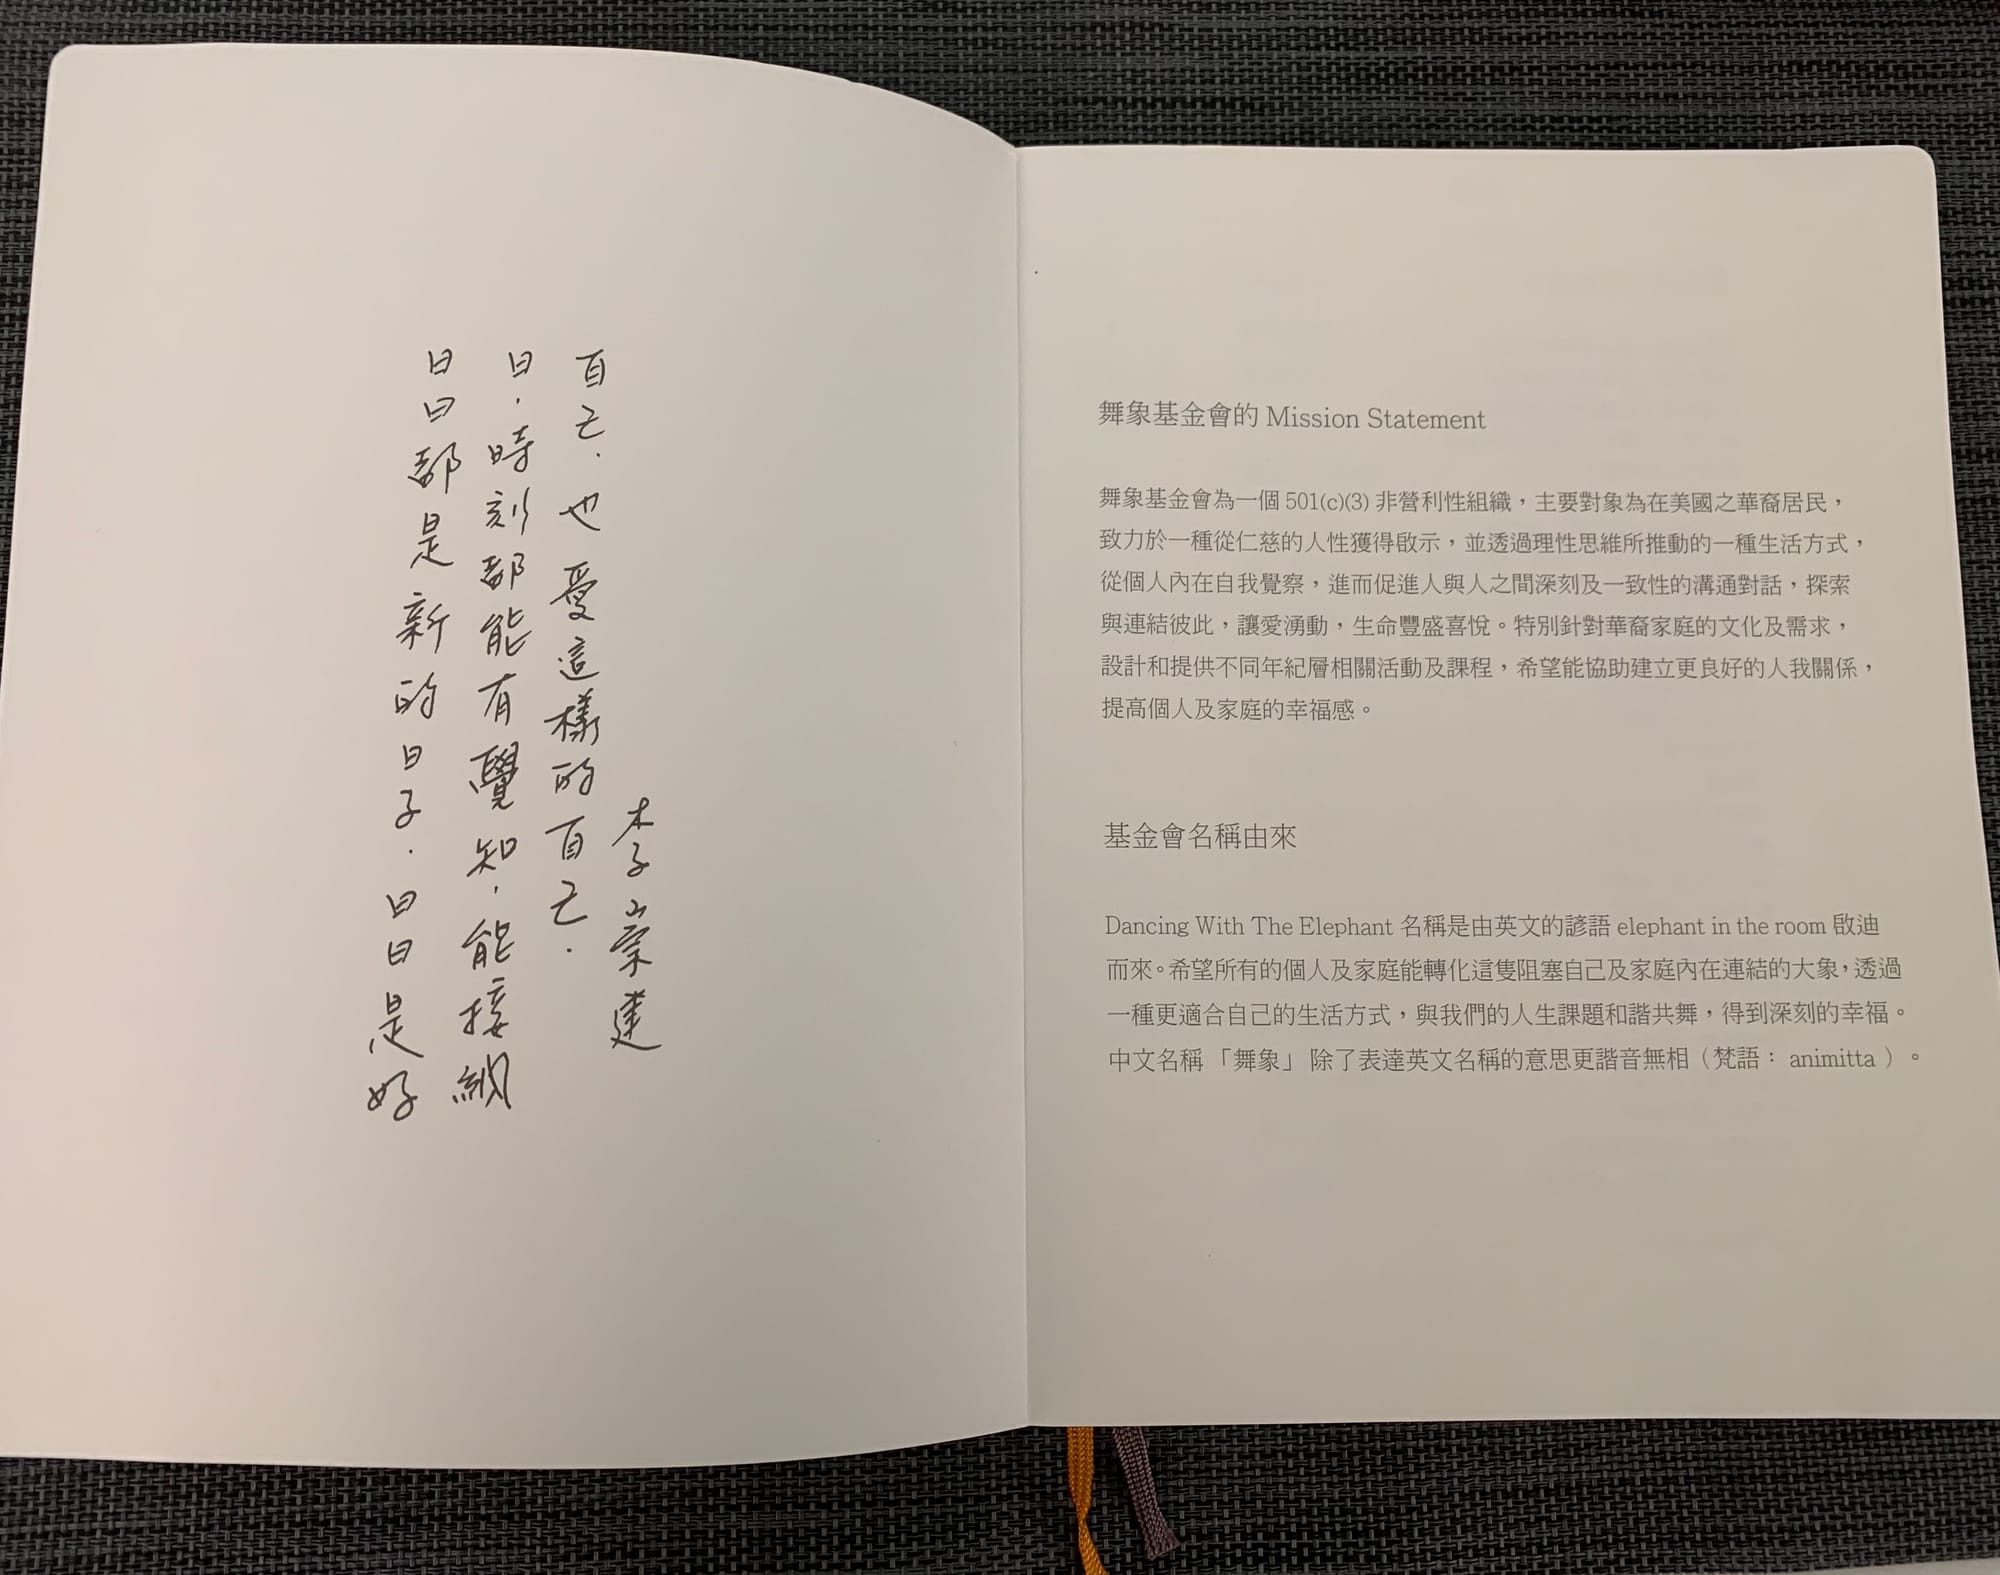 日日都是新的日子．日日是好
日．時刻都能有覺知，能接納
自己．也愛這樣的自己．
李崇建
舞象基金會的 Mission Statement
舞象基金會為一個 501(c)(3) 非營利性組織，主要對象為在美國之華裔居民，
致力於一種從仁慈的人性獲得啟示，並透過理性思維所推動的一種生活方式，
從個人內在自我覺察，進而促進人與人之間深刻及一致性的溝通對話，探索
與連結彼此，讓愛湧動，生命豐盛喜悅。特別針對華裔家庭的文化及需求，
設計和提供不同年紀層相關活動及課程，希望能協助建立更良好的人我關係，
提高個人及家庭的幸福感。
基金會名稱由來
Dancing With The Elephant 名稱是由英文的諺語 elephant in the room 啟迪
而來。希望所有的個人及家庭能轉化這隻阻塞自己及家庭內在連結的大象，透過
一種更適合自己的生活方式，與我們的人生課題和諧共舞，得到深刻的幸福。
中文名稱「舞象」除了表達英文名稱的意思更諧音無相（梵語： animitta ）。